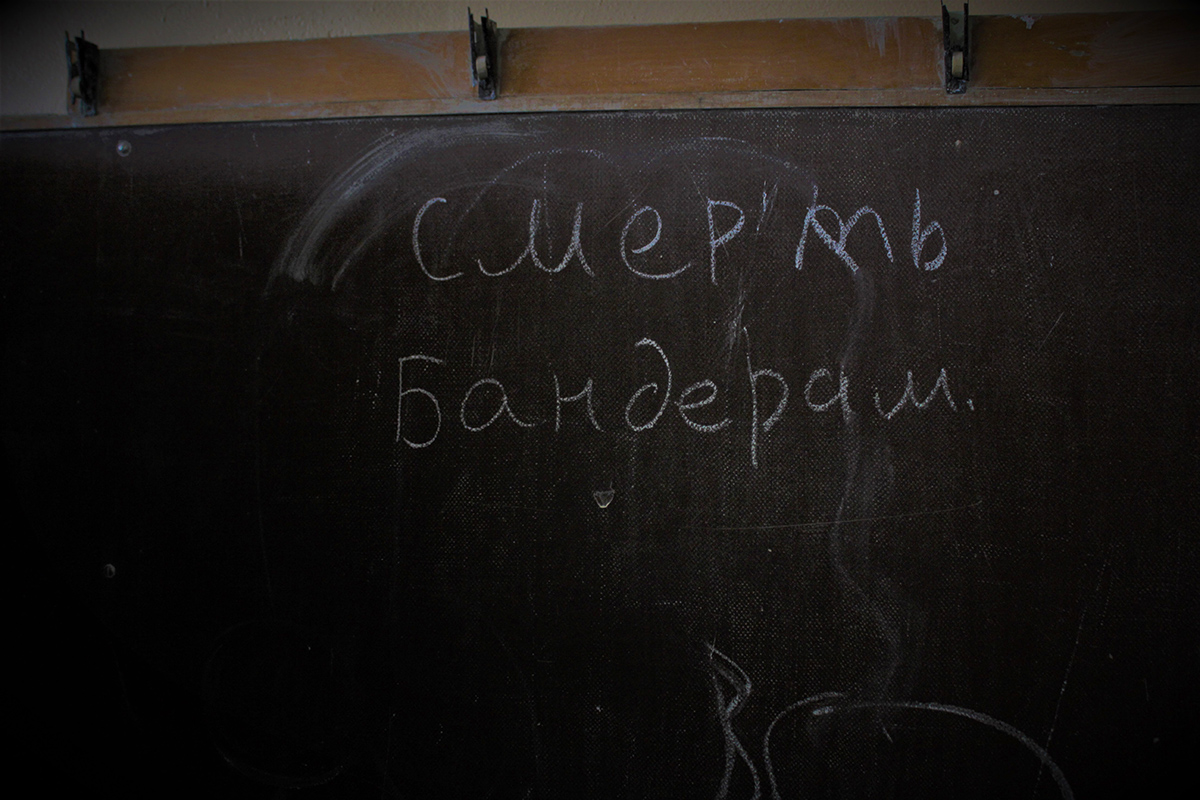 Смерть
Бандерам.